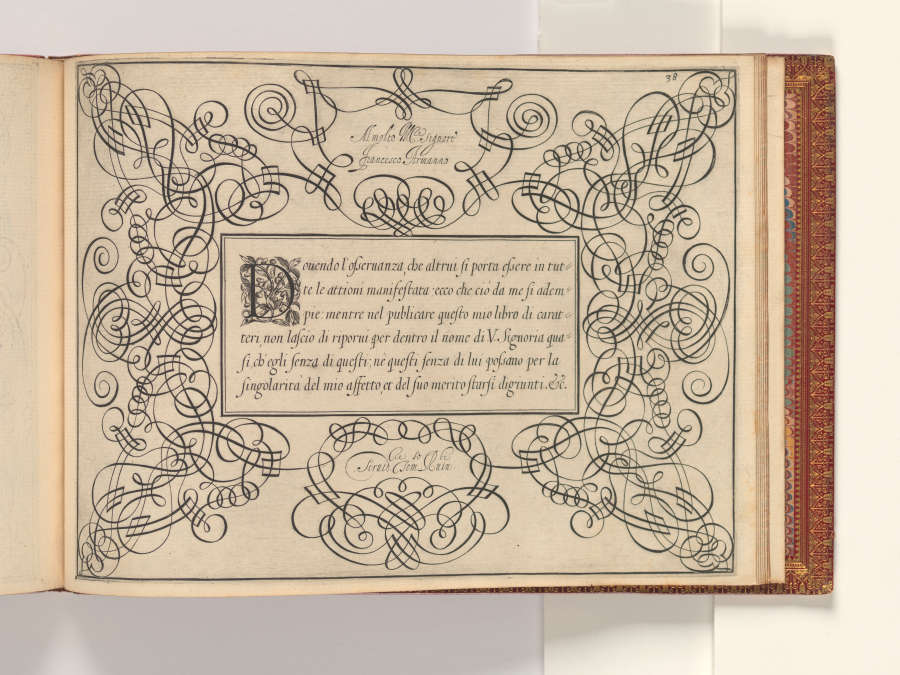 38
Al molto Mͨ Signore
Francesco Armanno
Douendo l'osseruanza, che altrui si porta essere in tut=
te le attioni manifestata ecco che ciò da me si adem=
pie: mentre nel publicare questo mio libro di carat=
teri, non lascio di riporui per dentro il nome di V. Signoria qua=
si, ch'egli senza di questi; nè questi senza di lui possano per la
singolarità del mio affetto, et del suo merito starsi digiunti. &c.